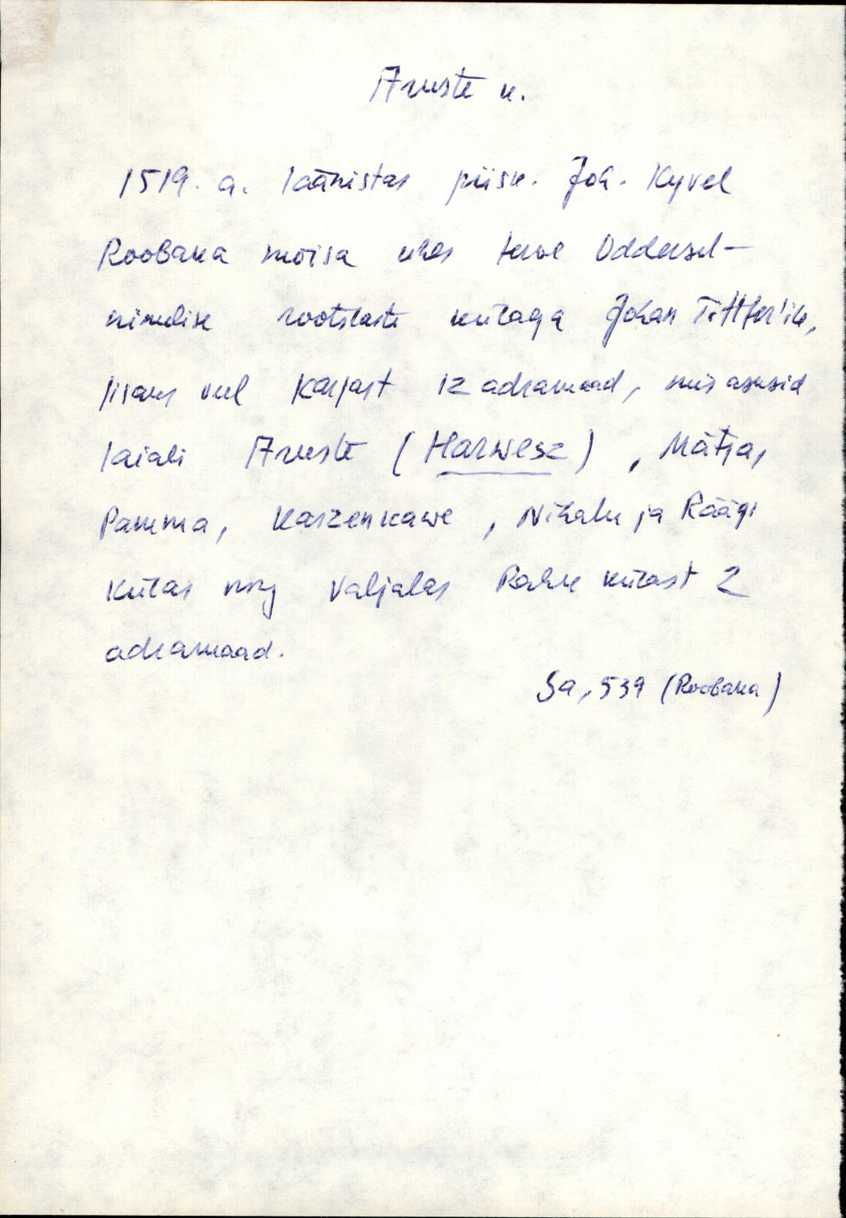 Aruste k.
1519. a. läänistas piisk. Joh. Kyvel
Roobaka mõisa ühes terve Oddersel-
nimelise rootslaste külaga Johan Tittfer'ile,
lisaks veel Karjast 12 adramaad, mis asusid
laiali Aruste (Harwesz), Mätja,
Pamma, Kaszenkawe, Nihatu ja Räägi
külas ning Valjalas Rahu külast 2
adramaad.
Sa, 539 (Roobaka)